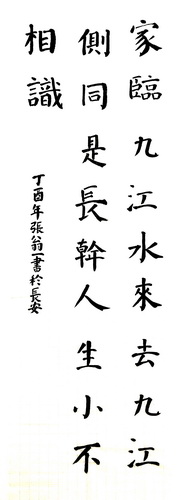 家臨九江水來去九江
側同是長幹人生小不
相識
丁酉年張翁一書於長安